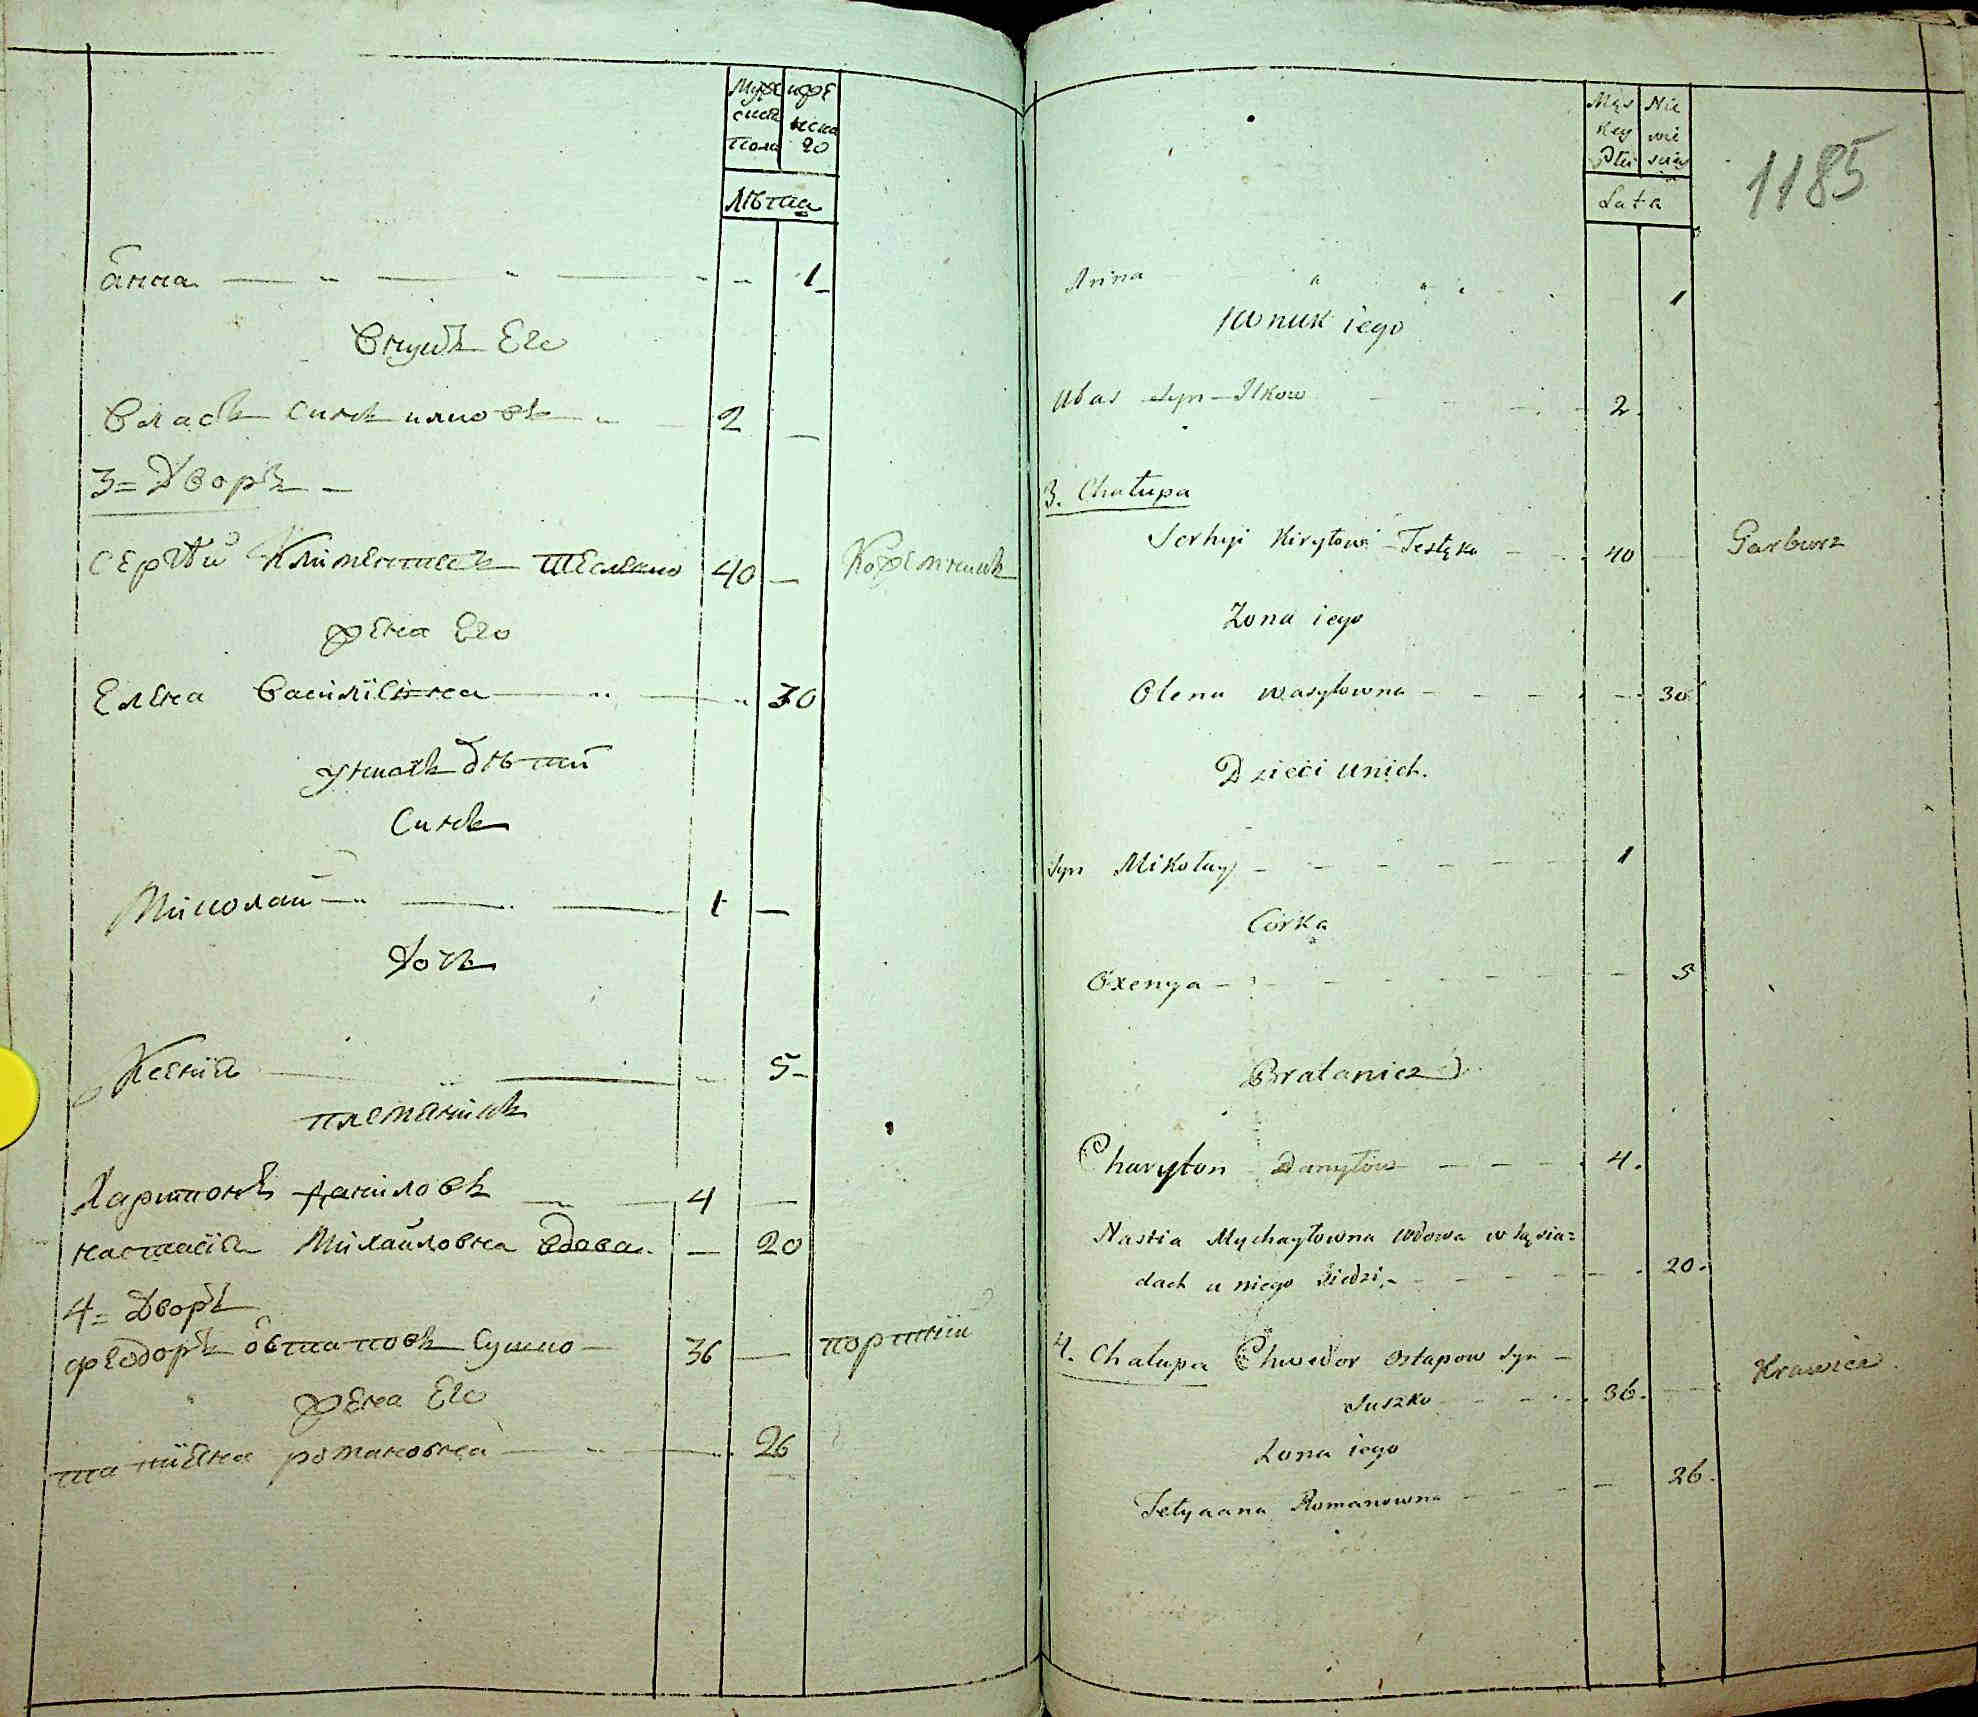 Муже
ска
пола
жде
нска
го
Лѣта
Анна 1
Внукъ Его
Власъ Синъ илковъ 2
3= Дворъ
Сергѣй Климентиевъ 40 Кожемякъ
жена Его
Елена Василиевна 30
У нихъ дѣтий
Синъ
Миколай 1
Дочь
Ксения 5
племяникъ
Харитонъ Даниловъ 4
Настасия Михайловна вдова 20
4= Дворъ
Феодоръ Остаповъ Сушко 36 портний
жена Его
татияна романовна 26
Męz
key
Płci
Nie
wie
sciey
Lata
1185
Anna 1
Wnuk iego
Ułas Syn Ilkow 2
3. Chałupa
Serhyi Kiryłowi 40 Garbarz
Zona iego
Olena Wasylowna 30
Dzieci unich.
Syn Mikołay 1
Corka
Oxenya 5
Bratanicz
Charyton Danyłow 4.
Nastia Mychayłowna Wdowa w sąsia=
dach u niego siedzi 20.
4. Chałupa Chwedor Ostapow Syn
Suszko 36. Krawiec
Zona iego
Tetyanna Romanowna 26.